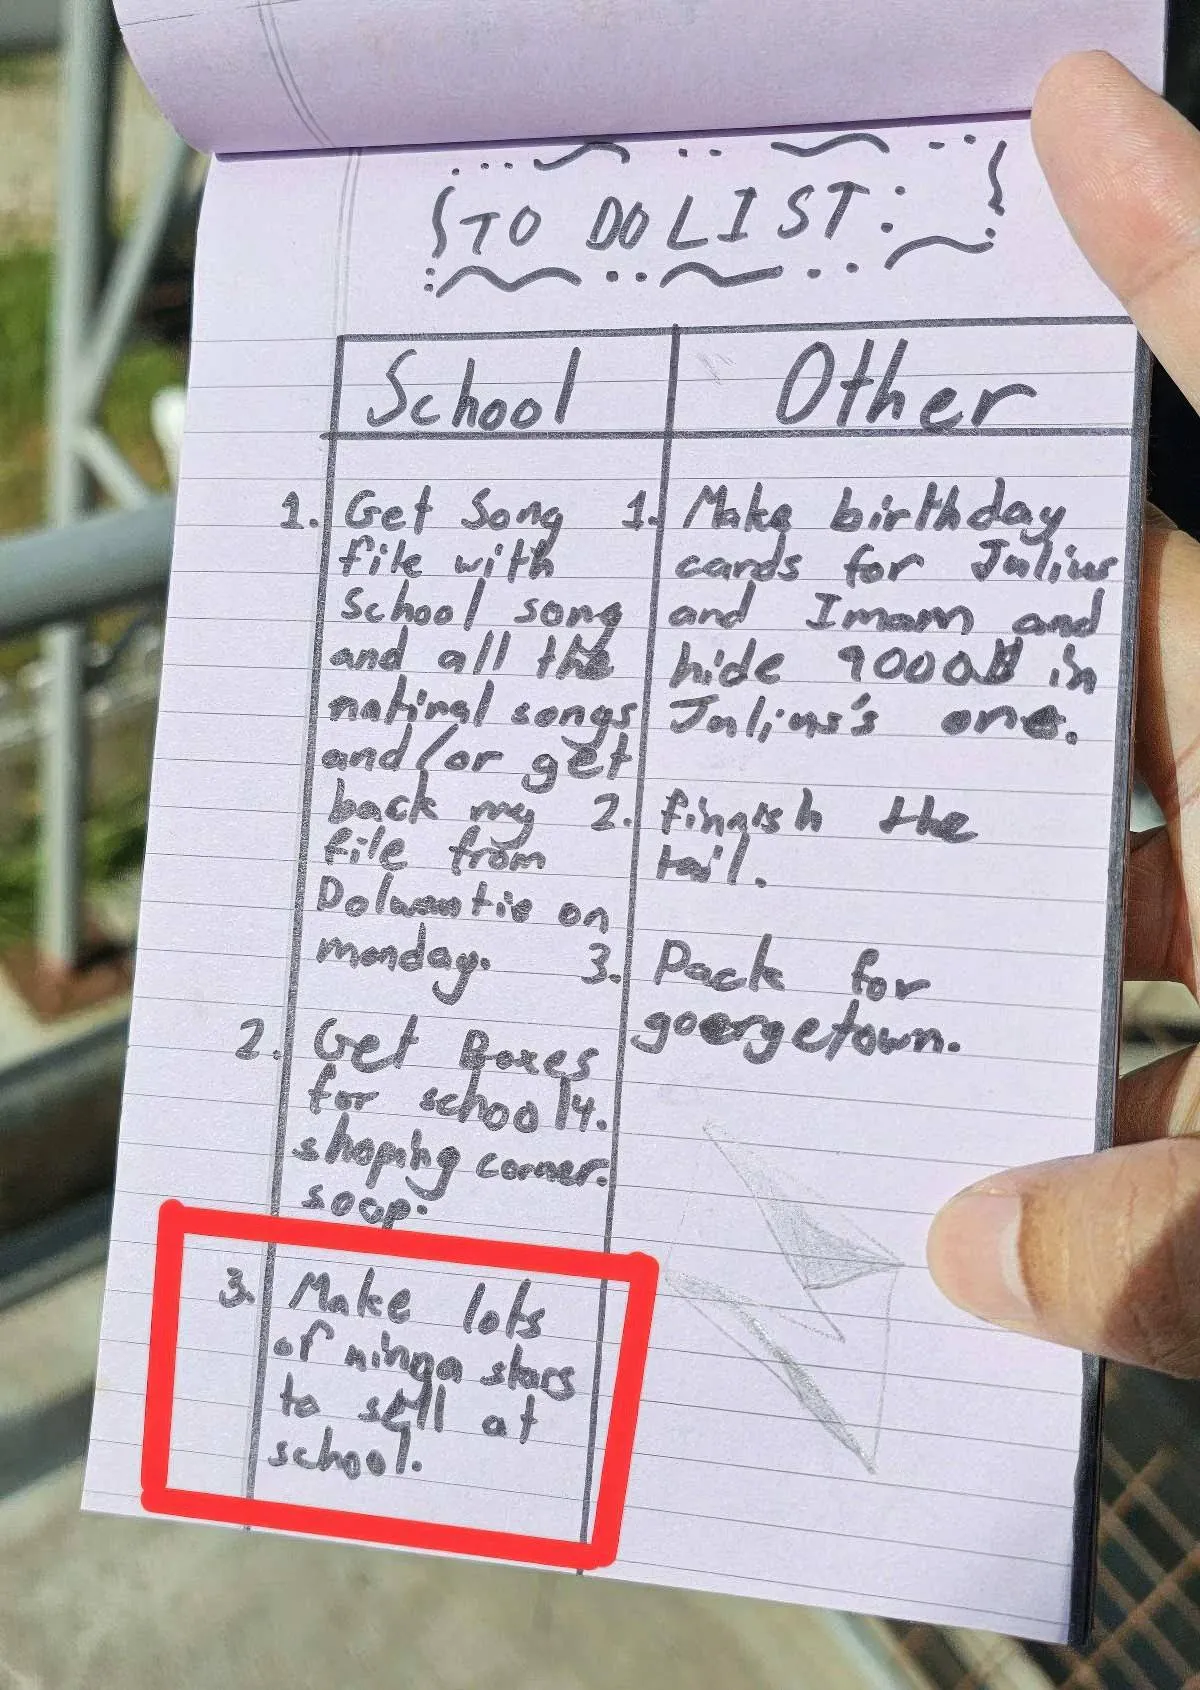 TO DO LIST:
School
1. Get Song
file with
School song
and all the
natinal songs
and/or get
back my
file from
on
monday.
2. Get Boxes
for school 4.
shoping corner.
soop.
3. Make lots
of ninga stars
to sell at
school.
Other
1. Make birthday
cards for Julius
and Imam and
hide 9000 in
Julius's one.
2. finnish the
tail.
3. Pack for
goergetown.